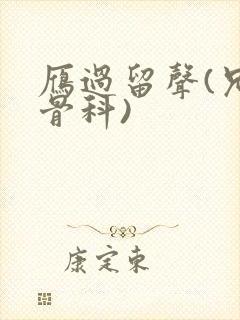 雁過留聲(兄
骨科)
康定東